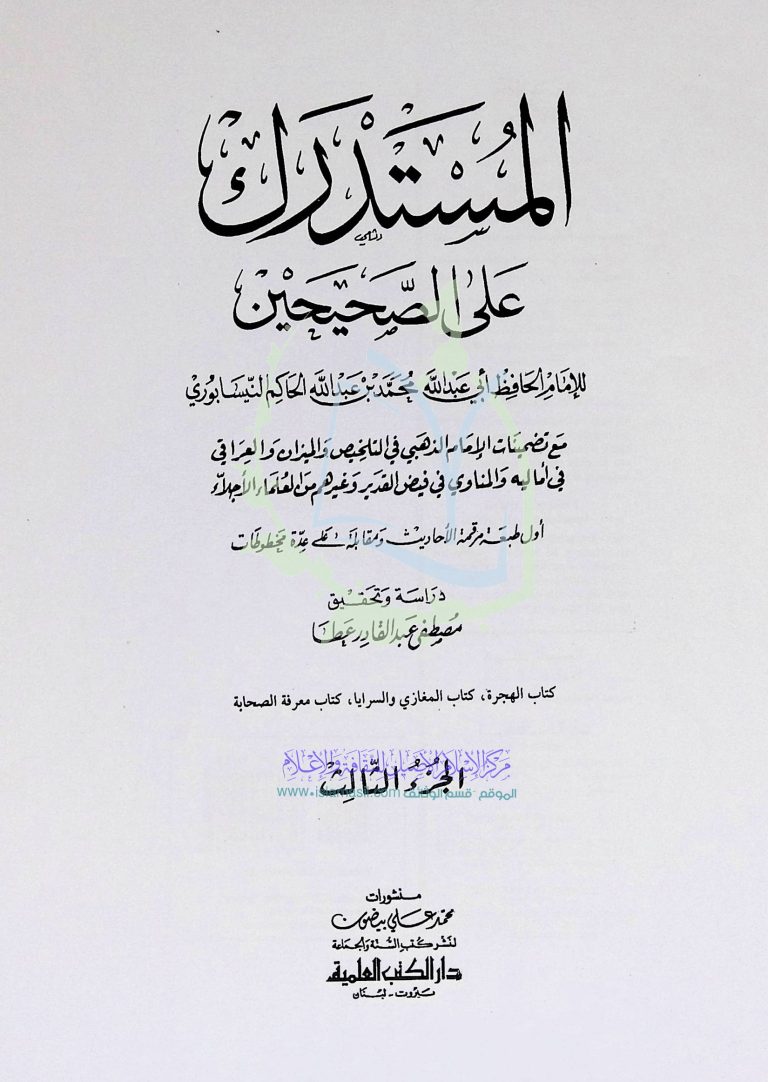 المُسْتَدْرَك
عَلَى الصَّحِيحَيْن
للإمَام الحَافِظ أبي عَبْدالله مُحَمَّد بْن عَبْدالله الحَاكِم النّيسَابُوريْ
مَع تضمينَات الإمَام الذهَبي في التلخيص وَالميزان وَالعِرَاقي
في أماليه وَالمناوي في فيض القدير وَغيرهم مِنَ العُلماء الأجِلاّء
أول طبعَة مرقمة الأحَاديث وَمقَابلة عَلى عِدّة مَخطوطَات
دِرَاسَة وَتحقيْق
مُصِطفى عَبد القَادر عَطَا
كتاب الهجرة، كتاب المغازي والسرايا، كتاب معرفة الصحابة
مركز الإسلام الأصيل للثقافة والإعلام
الجُزءُ الثَّالِث
الموقع - قسم الوثائق www.islamasil.com
منشورات
محمّد عَلي بيضون
لنشر كتب السُّنّة وَالجمَاعَة
دار الكتب العلمية
بَيْرُوت - لبْنَان